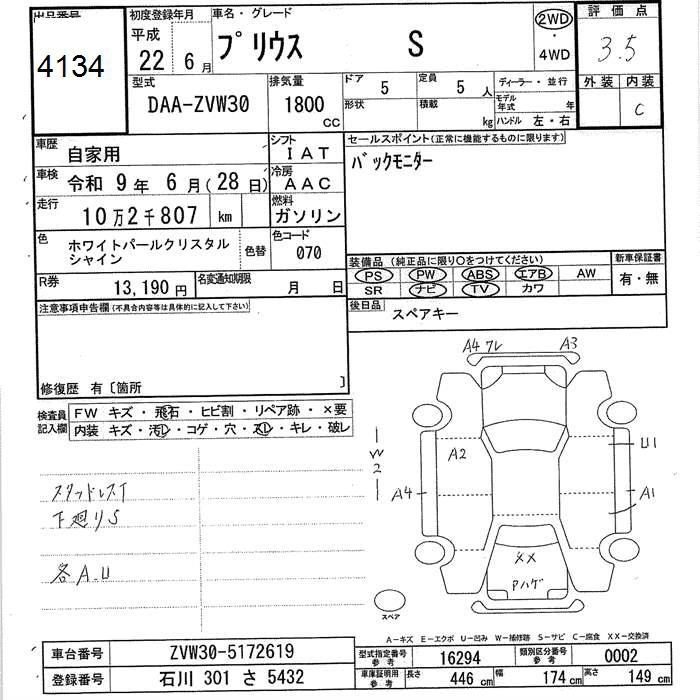 出品番号
4134
初度登録年月
平成
22 年 6 月
車名・グレード
プリウス S
2WD
・
4WD
評価点
3.5
型式
DAA-ZVW30
排気量
1800 CC
ドア 5
形状
定員 5 人
積載 kg
ディーラー・並行
モデル年式 年
ハンドル 左・右
外装 内装
C
車歴 自家用
シフト IAT
車検 令和 9 年 6 月(28 日)
冷房 AAC
走行 10万2千807 km
燃料 ガソリン
色 ホワイトパールクリスタル
シャイン
色替
色コード 070
R券 13,190 円
名変通知期限 月 日
セールスポイント(正常に機能するものに限ります)
バックモニター
装備品 (純正品に限り○をつけてください)
PS PW ABS エアB AW
SR ナビ TV カワ
新車保証書
有・無
後日品 スペアキー
注意事項申告欄(不具合内容等は具体的に記入して下さい)
修復歴 有〔箇所 〕
検査員
記入欄
FW キズ・飛石・ヒビ割・リペア跡・×要
内装 キズ・汚レ・コゲ・穴・スレ・キレ・破レ
スタッドレスT
下廻りS
各A.U
A4 ワレ A3
W2
A2
U1
A4
A1
XX
Pハゲ
スペア
A−キズ E−エクボ U−凹み W−補修跡 S−サビ C−腐食 XX−交換済
車台番号 ZVW30-5172619
登録番号 石川 301 さ 5432
型式指定番号
参考
16294
類別区分番号
参考
0002
車庫証明用
参考
長さ 446 cm 幅 174 cm 高さ 149 cm